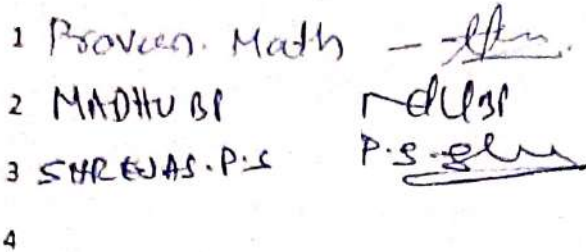 1 Praveen. Math -
2 MADHU BP
3 SHREYAS.P.S P.S.
4